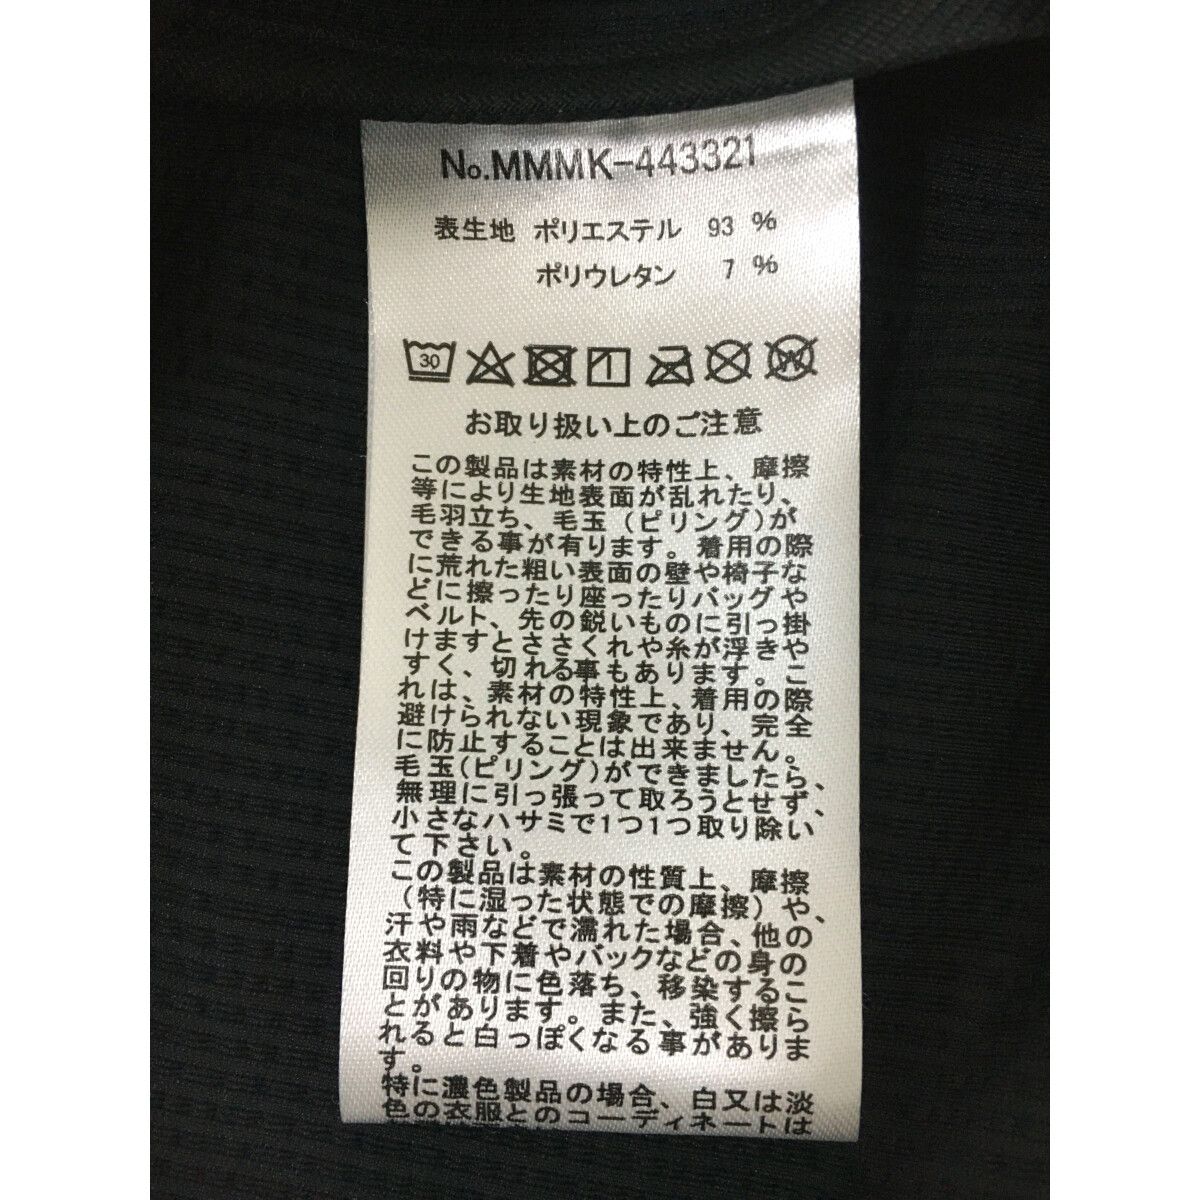 No.MMMK-443321
表生地 ポリエステル 93 %
ポリウレタン 7 %
30
W
お取り扱い上のご注意
この製品は素材の特性上、摩擦
等により生地表面が乱れたり、
毛羽立ち、毛玉(ピリング)が
できる事が有ります。着用の際
に荒れた粗い表面の壁や椅子な
どに擦ったり座ったりバッグや
ベルト、先の鋭いものに引っ掛
けますとささくれや糸が浮きや
すく、切れる事もあります。こ
れは、素材の特性上、着用の際
避けられない現象であり、完全
に防止することは出来ません。
毛玉(ピリング)ができましたら、
無理に引っ張って取ろうとせず、
小さなハサミで1つ1つ取り除い
て下さい。
この製品は素材の性質上、摩擦
(特に湿った状態での摩擦)や、
汗や雨などで濡れた場合、他の
衣料や下着やバックなどの身の
回りの物に色落ち、移染するこ
とがあります。また、強く擦ら
れると白っぽくなる事がありま
す。
特に濃色製品の場合、白又は淡
色の衣服とのコーディネートは